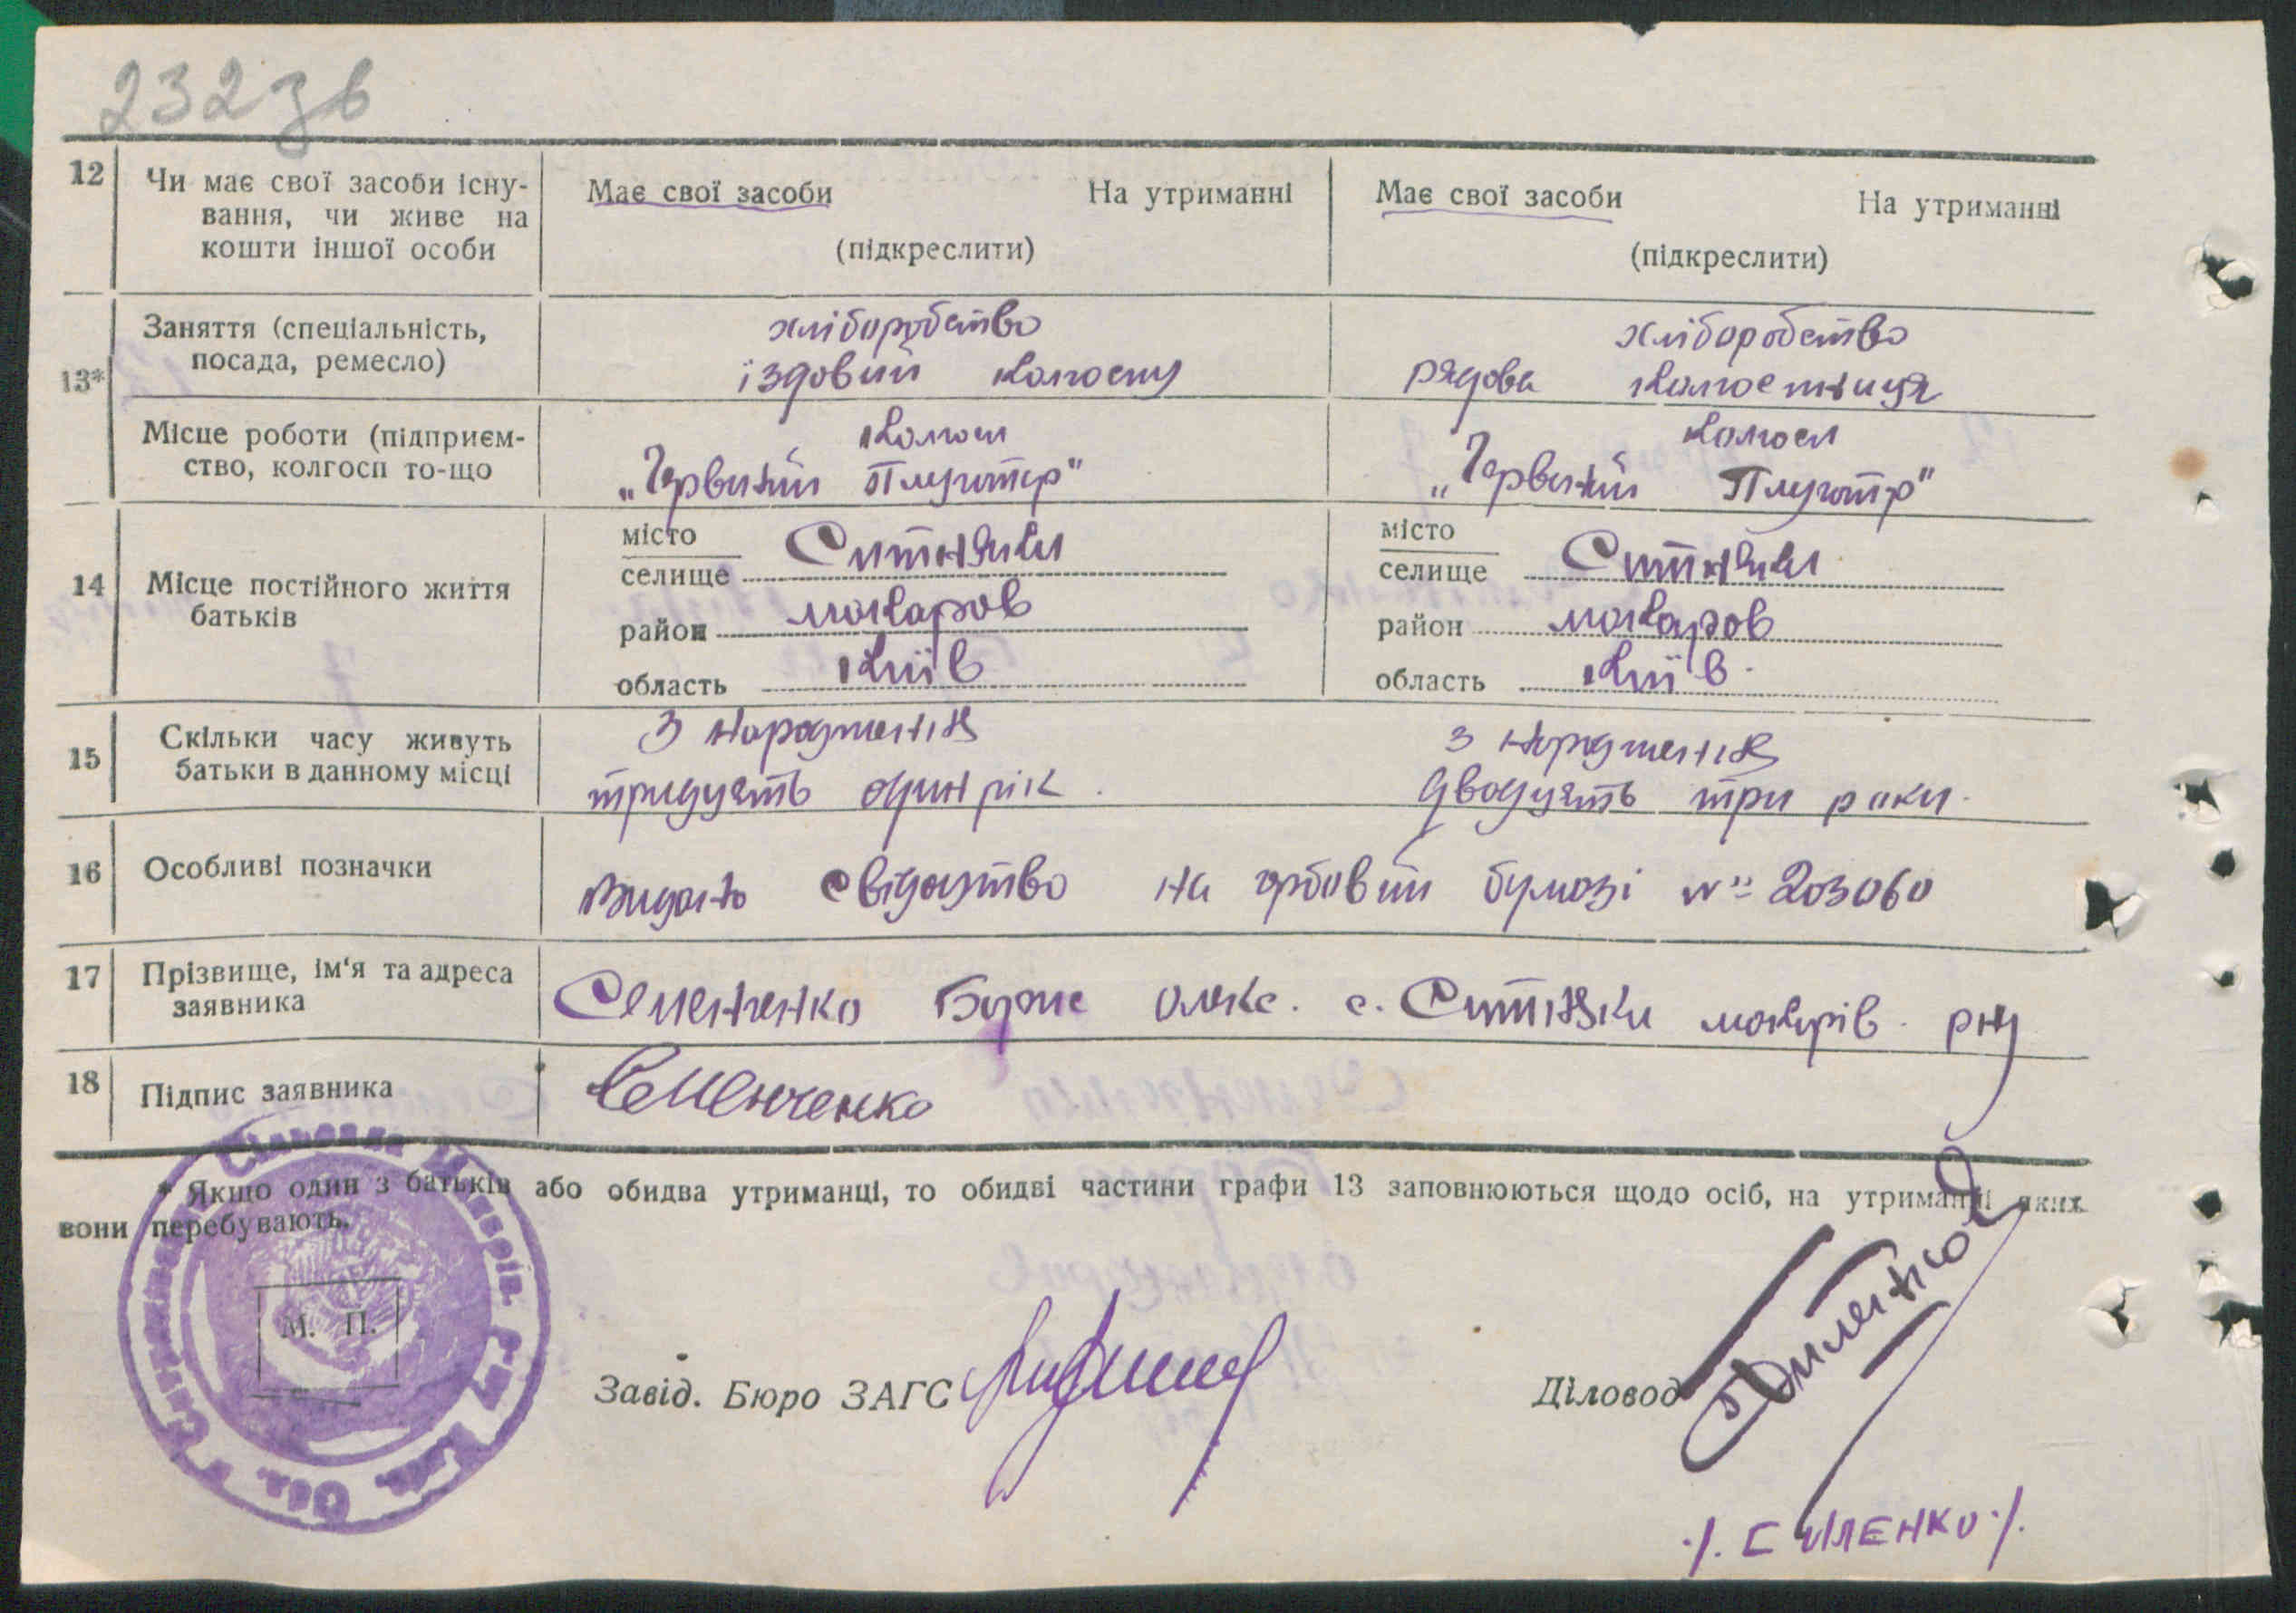 232зв
12 Чи має свої засоби існу-
вання, чи живе на
кошти іншої особи
Має свої засоби На утриманні
(підкреслити)
Має свої засоби На утриманні
(підкреслити)
13*
Заняття (спеціальність,
посада, ремесло)
хліборобство
їздовий колгоспу
хліборобство
рядова колгоспниця
Місце роботи (підприєм-
ство, колгосп то-що
колгосп
„Червоний Плугатар"
колгосп
„Червоний Плугатар"
14 Місце постійного життя
батьків
місто
селище Ситняки
район макаров
область Київ
місто
селище Ситняки
район макаров
область Київ
15 Скільки часу живуть
батьки в данному місці
З народження
тридцять один рік.
з народження
двадцять три роки.
16 Особливі позначки
Видано свідоцтво на гербовій бумазі № 203060
17 Прізвище, ім'я та адреса
заявника
Семенченко Борис Олекс. с. Ситняки макарів. р-ну
18 Підпис заявника
Семенченко
* Якщо один з батьків або обидва утриманці, то обидві частини графи 13 заповнюються щодо осіб, на утриманні яких
вони перебувають.
М. П.
Завід. Бюро ЗАГС
Діловод
./. СИЛЕНКО ./.